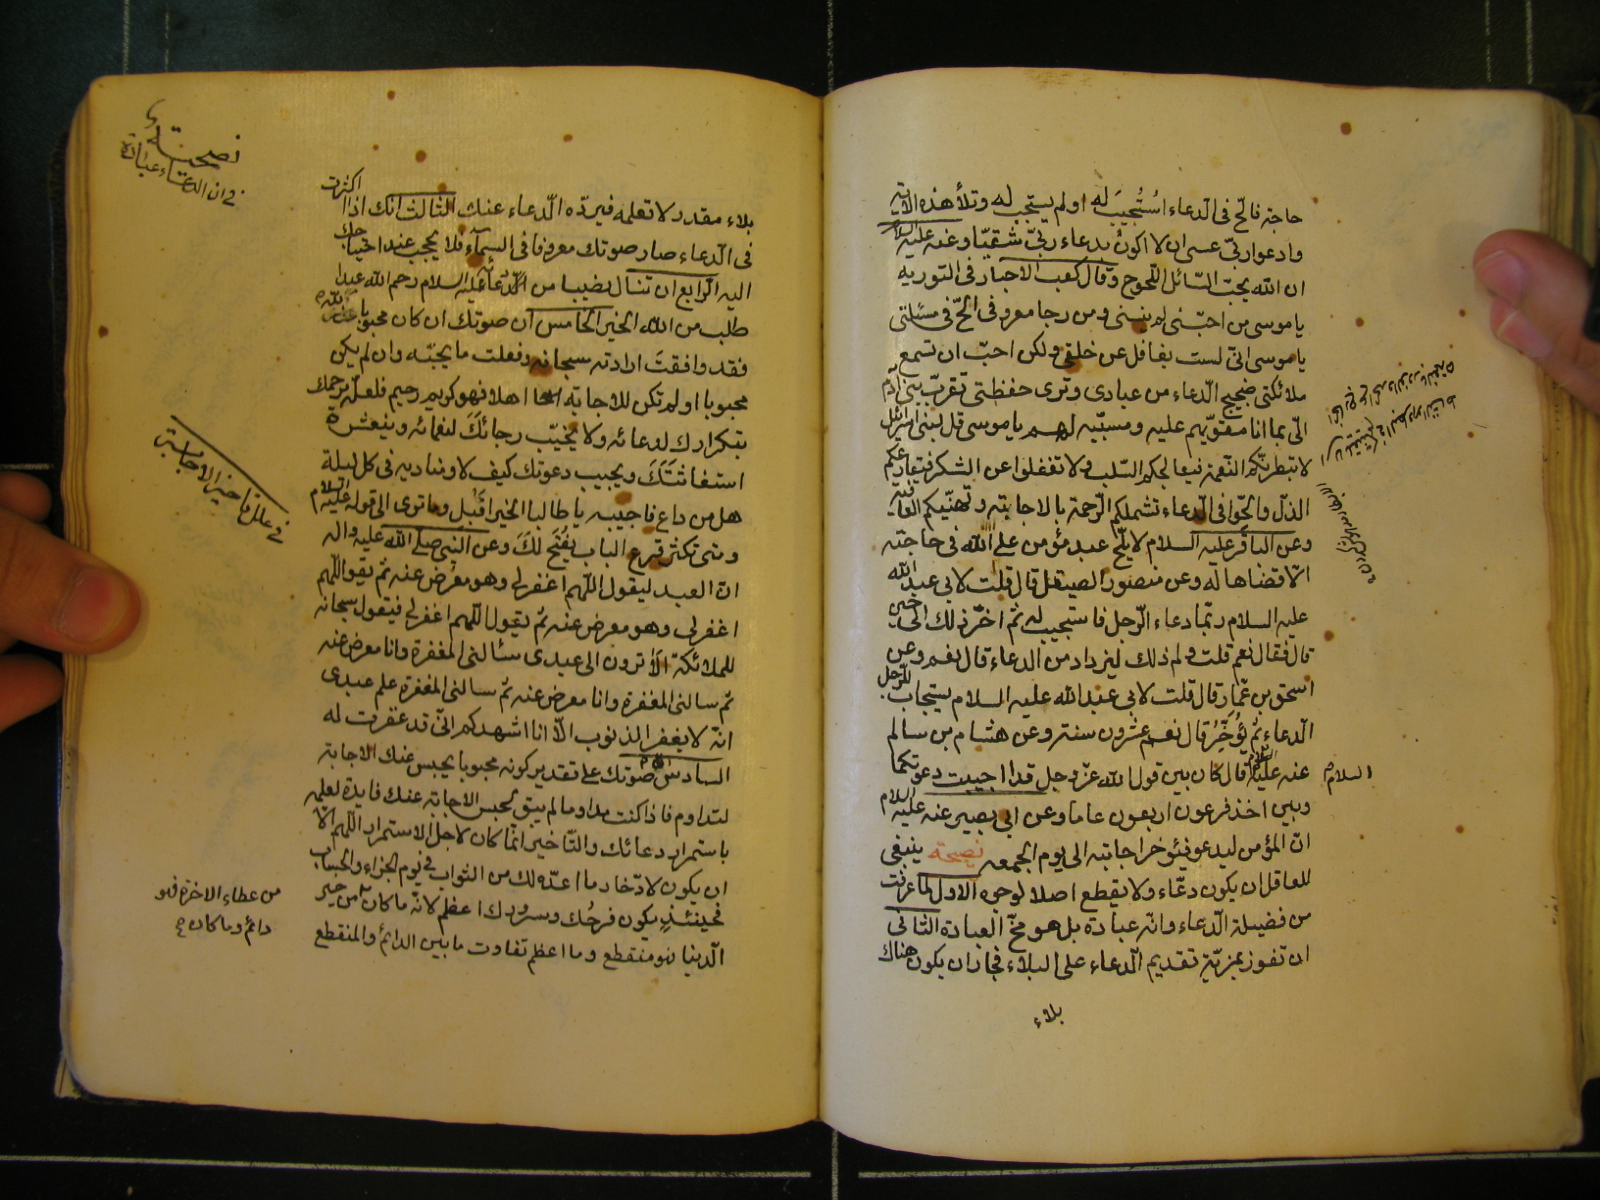 حاجة فالحّ فى الدّعاء اُستُجيبَ له او لم يستجب له وتلا هذه الاية
وادعوا ربّى عسى ان لا اكون بدعاء ربّى شقيّا وعنه عليه السلام
ان الله يحبّ السّائل اللّحوح وقال كعب الاحبار فى التورية
ياموسى من احبّنى لم ينسنى ومن رجا معروفى الحّ فى مسئلتى
ياموسى انّى لست بغافل عن خلقى ولكن احبّ ان تسمع
ملائكتى ضجيج الدّعاء من عبادى وترى حفظتى تقرّب بنى ادم
الىّ بما انا مقوّيهم عليه ومسبّبه لهم ياموسى قل لبنى اسرائيل
لا تبطرنّكم النّعمة فيعاجلكم السّلب ولا تغفلوا عن الشكر فيقارعكم
الذلّ والحّوا فى الدّعاء تشملكم الرّحمة بالاجابة وتهنّيكم العافية
وعن الباقر عليه السلام لا يلحّ عبد مؤمن على الله فى حاجته
الّا قضاها له وعن منصور الصيقل قال قلت لابى عبد الله
عليه السلام ربّما دعاء الرّجل فاستجيب له ثم اخّر ذلك الى حين
قال فقال نعم قلت ولم ذلك ليزداد من الدعاء قال نعم وعن
اسحق بن عمّار قال قلت لابى عبد الله عليه السلام يستجاب للرّجل
الدّعاء ثم يُؤَخَّرُ قال نعم عشرون سنة وعن هشام بن سالم
عنه عليه السلام قال كان بين قول الله عزّ وجل قد اجيبت دعوتكما
وبين اخذ فرعون اربعون عاما وعن ابى بصير عنه عليه السلام
انّ المؤمن ليدعو فيؤخر اجابته الى يوم الجمعه نصيحة ينبغى
للعاقل ان يكون دعّاء ولا يقطع اصلا لوجوه الاول لما عرفت
من فضيلة الدّعاء وانّه عبادة بل هو مخّ العبادة الثانى
ان تفوز بمزيّة تقديم الدّعاء على البلاء فجاز ان يكون هناك
بلاء
السلام
بلاء مقدر لا تعلمه فيردّه الدّعاء عنك الثالث انك اذا اكثرت
فى الدّعاء صار صوتك معروفا فى السمآء فلا يحجب عند احتياجك
اليه الرّابع ان تنال نصيبا من دعآئه عليه السلام رحم الله عبدا
طلب من الله الخير الخامس ان صوتك ان كان محبوبا عند الله
فقد وافقتَ ارادته سبحانه وفعلت ما يحبّه وان لم يكن
محبوبا او لم تكن للاجابة اهلا فهو كريم رحيم فلعلّه يرحمك
بتكرارك لدعائه ولا يخيّب رجائكَ لنعمائه وينعش
استغاثتَكَ ويجيب دعوتك كيف لا ومناديه فى كل ليلة
هل من داع فاجيبه يا طالبا الخير اقبل وما ترى الى قوله عليه السلام
ومتى تكثر قرع الباب يُفْتَح لكَ وعن النبى صلى الله عليه واله
انّ العبد ليقول اللّهم اغفر لى وهو معرض عنه ثم يقول اللّهم
اغفر لى وهو معرض عنه ثم يقول اللّهم اغفر لى فيقول سبحانه
للملائكة الا ترون الى عبدى سئالنى المغفرة وانا معرض عنه
ثم سالنى المغفرة وانا معرض عنه ثم سالنى المغفرة علم عبدى
انّه لا يغفر الذنوب الّا انا اشهدكم انّى قد غفرت له
السادس صوتك على تقدير كونه محبوبا يحبس عنك الاجابة
لتداوم فاذا كنت مداوما لم يبق لحبس الاجابة عنك فايدة لعلمه
باستمرار دعائك والتّاخير انّما كان لاجل الاستمرار اللّهم الّا
ان يكون لادّخار ما اعدّه لك من الثواب فى يوم الجزاء والحساب
فحينئذٍ يكون فرحُك وسرورك اعظم لانّه ما كان من خير
الدّنيا فهو منقطع وما اعظم تفاوت ما بين الدائم والمنقطع
نصيحة
فى ان الدعاء عبادة
فى علل تاخير الاجابة
من عطاء الاخرة فهو
دائم وما كان